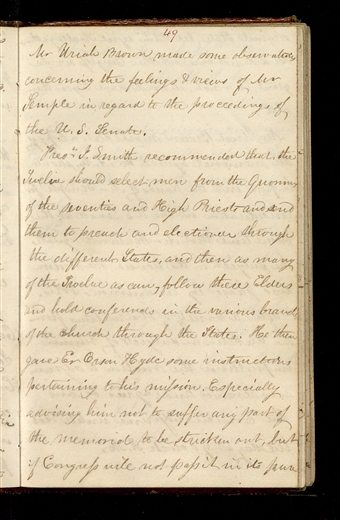 49
Mr Uriah Brown made some observations
concerning the feelings & views of Mr
Semple in regard to the proceedings of
the U. S. Senate.
Presdt J. Smith recommended that the
Twelve should select men from the Quorums
of the seventies and High Priests and send
them to preach and electioneer through
the different States, and then as many
of the Twelve as can, follow these Elders
and hold conferences in the various branches
of the church through the States. He then
gave Er Orson Hyde some instructions
pertaining to his mission. Especially
advising him not to suffer any part of
the memorial to be stricken out, but
if Congress will not pass it in its pure